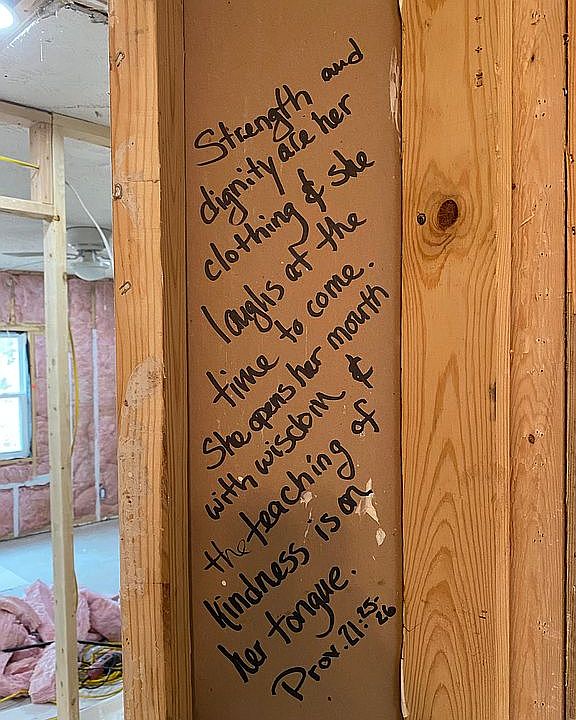 Strength and
dignity are her
clothing & she
laughs at the
time to come.
She opens her mouth
with wisdom &
the teaching of
kindness is on
her tongue.
Prov. 21:25-
26